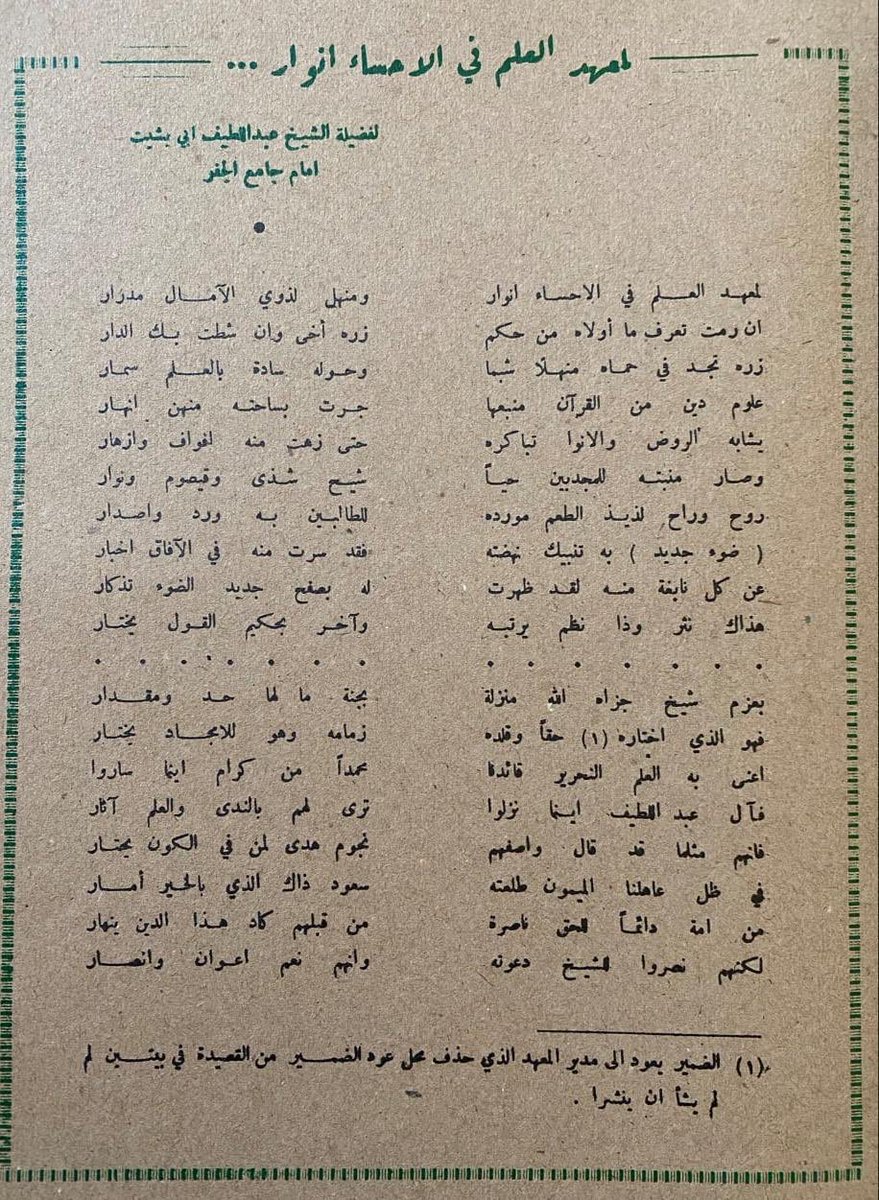 لمعهد العلم في الاحساء انوار ...
لفضيلة الشيخ عبداللطيف ابي بشيت
امام جامع الجفر
لمعهد العلم في الاحساء انوار ومنهل لذوي الآمال مدرار
ان رمت تعرف ما أولاه من حكم زره أخى وان شطت بك الدار
زره تجد في حماه منهلًا شبما وحوله سادة بالعلم سمار
علوم دين من القرآن منبعها جرت بساحته منهن انهار
يشابه الروض والانوا تباكره حتى زهت منه افواف وازهار
وصار منبته للمجدبين حياً شيح شذى وقيصوم ونوار
روح وراح لذيذ الطعم مورده للطالبين به ورد واصدار
( ضوء جديد ) به تنبيك نهضته فقد سرت منه في الآفاق اخبار
عن كل نابغة منه لقد ظهرت له بصفح جديد الضوء تذكار
هذاك نثر وذا نظم يرتبه وآخر بحكيم القول يختار
. . . . . . . . . . . . . .
بعزم شيخ جزاه الله منزلة بجنة ما لها حد ومقدار
فهو الذي اختاره (١) حقاً وقلده زمامه وهو للامجاد يختار
اعنى به العلم النحرير قائدنا محمداً من كرام اينما ساروا
فآل عبد اللطيف اينما نزلوا ترى لهم بالندى والعلم آثار
فانهم مثلما قد قال واصفهم نجوم هدى لمن في الكون يحتار
في ظل عاهلنا الميمون طلعته سعود ذاك الذي بالخير أمار
من امة دائماً للحق ناصرة من قبلهم كاد هذا الدين ينهار
لكنهم نصروا للشيخ دعوته وانهم نعم اعوان وانصار
(١) الضمير يعود الى مدير المعهد الذي حذف محل عود الضمير من القصيدة في بيتين لم
لم يشأ ان ينشرا .